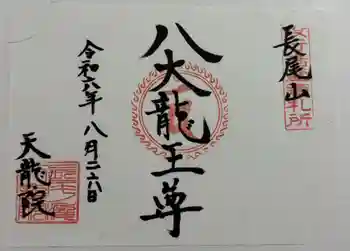 長尾山
八大龍王尊
令和六年 八月二六日
天龍院